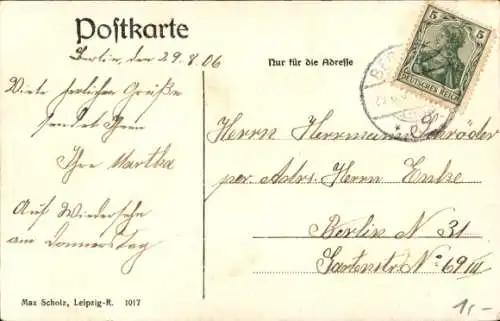 Postkarte
Berlin, den 29.8.06
Nur für die Adresse
Viele herzlichen Grüße
sendet Ihnen
Ihre Martha
Auf Wiedersehn
am Donnerstag
5 5
DEUTSCHES REICH
Herrn Herrmann Schröder
per. Adrs. Herrn Enke
Berlin N 31
Gartenstr. No: 69 III
Max Scholz, Leipzig-R. 1017
1,-